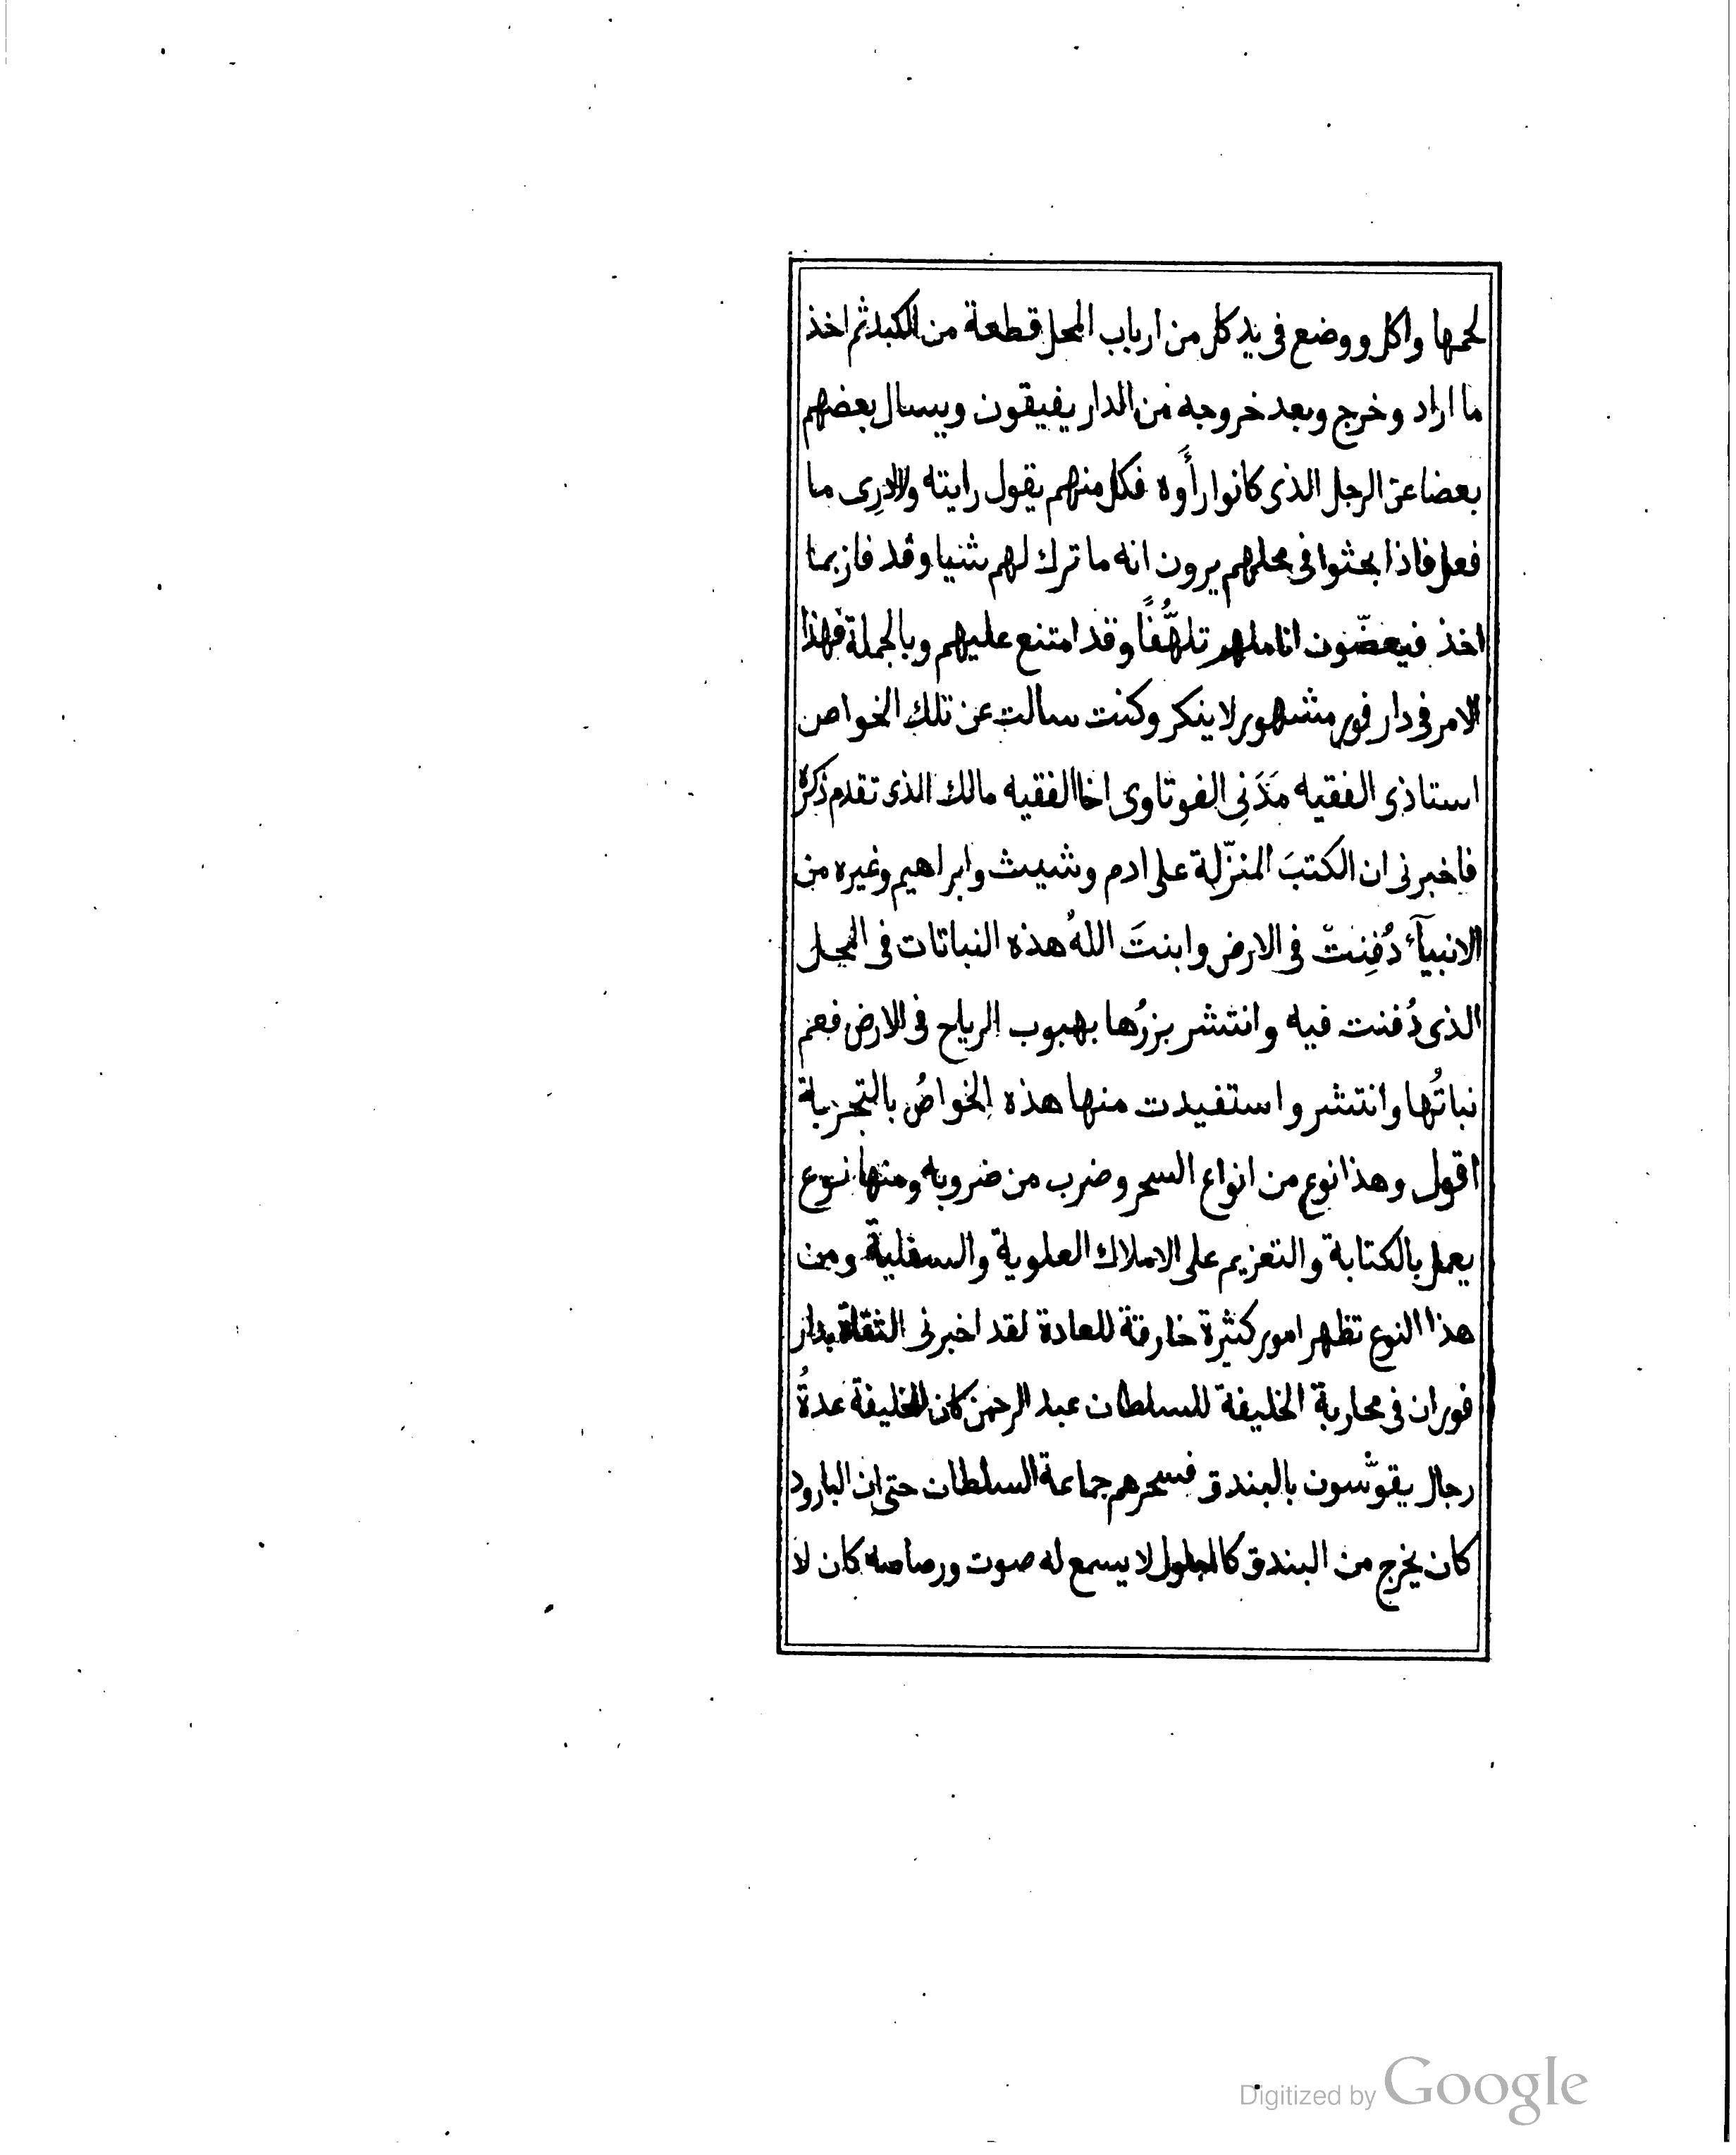 لحمها واكل ووضع فى يد كل من ارباب المحل قطعة من الكبد ثم اخذ
ما اراد وخرج وبعد خروجه من الدار يفيقون ويسال بعضهم
بعضا عن الرجل الذى كانوا رأَوه فكل منهم يقول رايته ولا ادرِى ما
فعل فاذا بحثوا فى محلهم يرون انه ما ترك لهم شيا وقد فاز بما
اخذ فيعضّون اناملهم تلهُّفًا وقد امتنع عليهم وبالجملة فهذا
الامر فى دار فور مشهور لا ينكر وكنت سالت عن تلك الخواص
استاذى الفقيه مَدَنِى الفوتاوى اخا الفقيه مالك الذى تقدم ذكره
فاخبرنى ان الكتبَ المنزّلة على ادم وشيث وابراهيم وغيره من
الانبيآء دُفِنتْ فى الارض وابنتَ اللهُ هذه النباتات فى المحل
الذى دُفنت فيه وانتشر بزرُها بهبوب الرياح فى الارض فعم
نباتُها وانتشر واستفيدت منها هذه الخواصُ بالتجربة
اقول وهذا نوع من انواع السحر وضرب من ضروبه ومنها نوع
يعمل بالكتابة والتعزيم على الاملاك العلوية والسفلية ومن
هذا النوع تظهر امور كثيرة خارقة للعادة لقد اخبرنى الثقاة بدار
فور ان فى محاربة الخليفة للسلطان عبد الرحمن كان للخليفة عدةُ
رجال يقوّسون بالبندق فسحرهم جماعة السلطان حتى ان البارود
كان يخرج من البندق كالمبلول لا يسمع له صوت ورصاصه كان لا
Digitized by Google